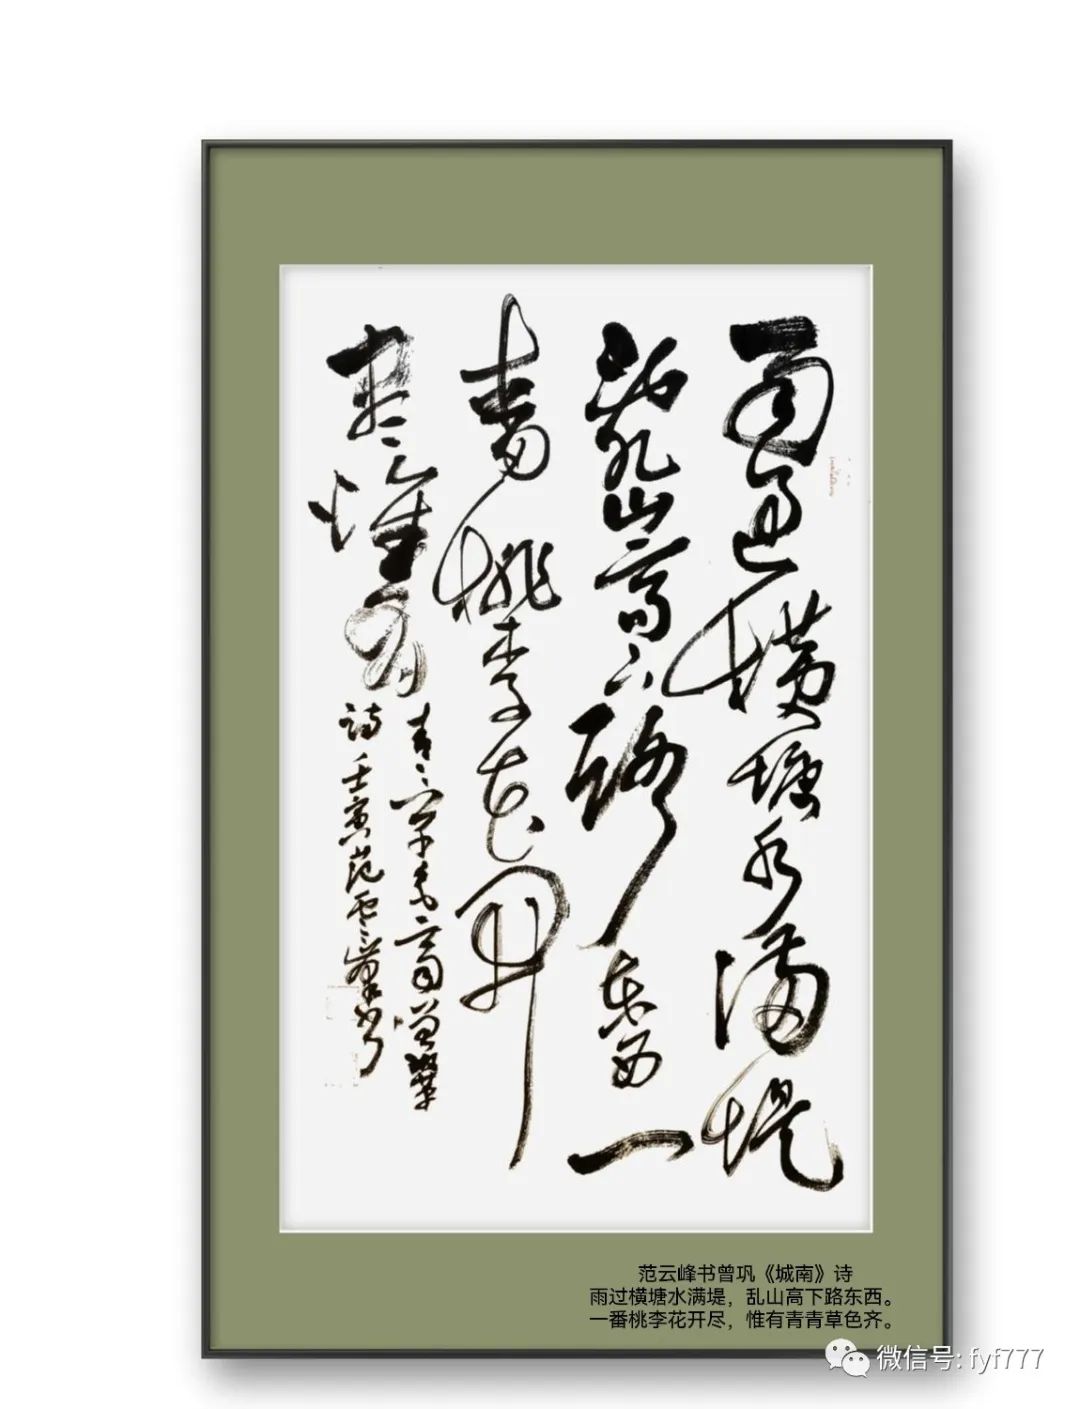 雨过横塘水满堤
乱山高下路东西一
番桃李花开
尽惟有
青青草色齐曾巩
诗壬寅范云峰书
范云峰书曾巩《城南》诗
雨过横塘水满堤，乱山高下路东西。
一番桃李花开尽，惟有青青草色齐。
微信号: fyf777